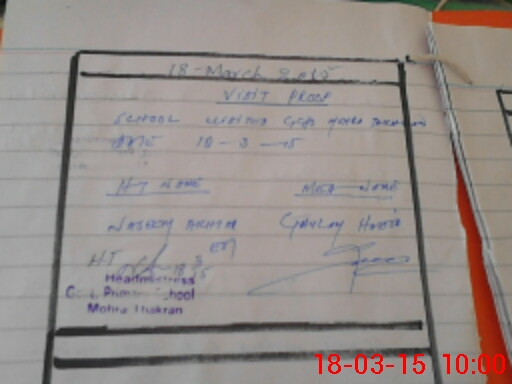 18-March 2015
VISIT PROOF
SCHOOL VISITED GGPS MOHRA THAKRAN
DATE 18-3-15
HT NAME MEA NAME
NASEEM AKHTAR
HT
18
3
15
Headmistress
Govt. Primary School
Mohra Thakran
18-03-15 10:00